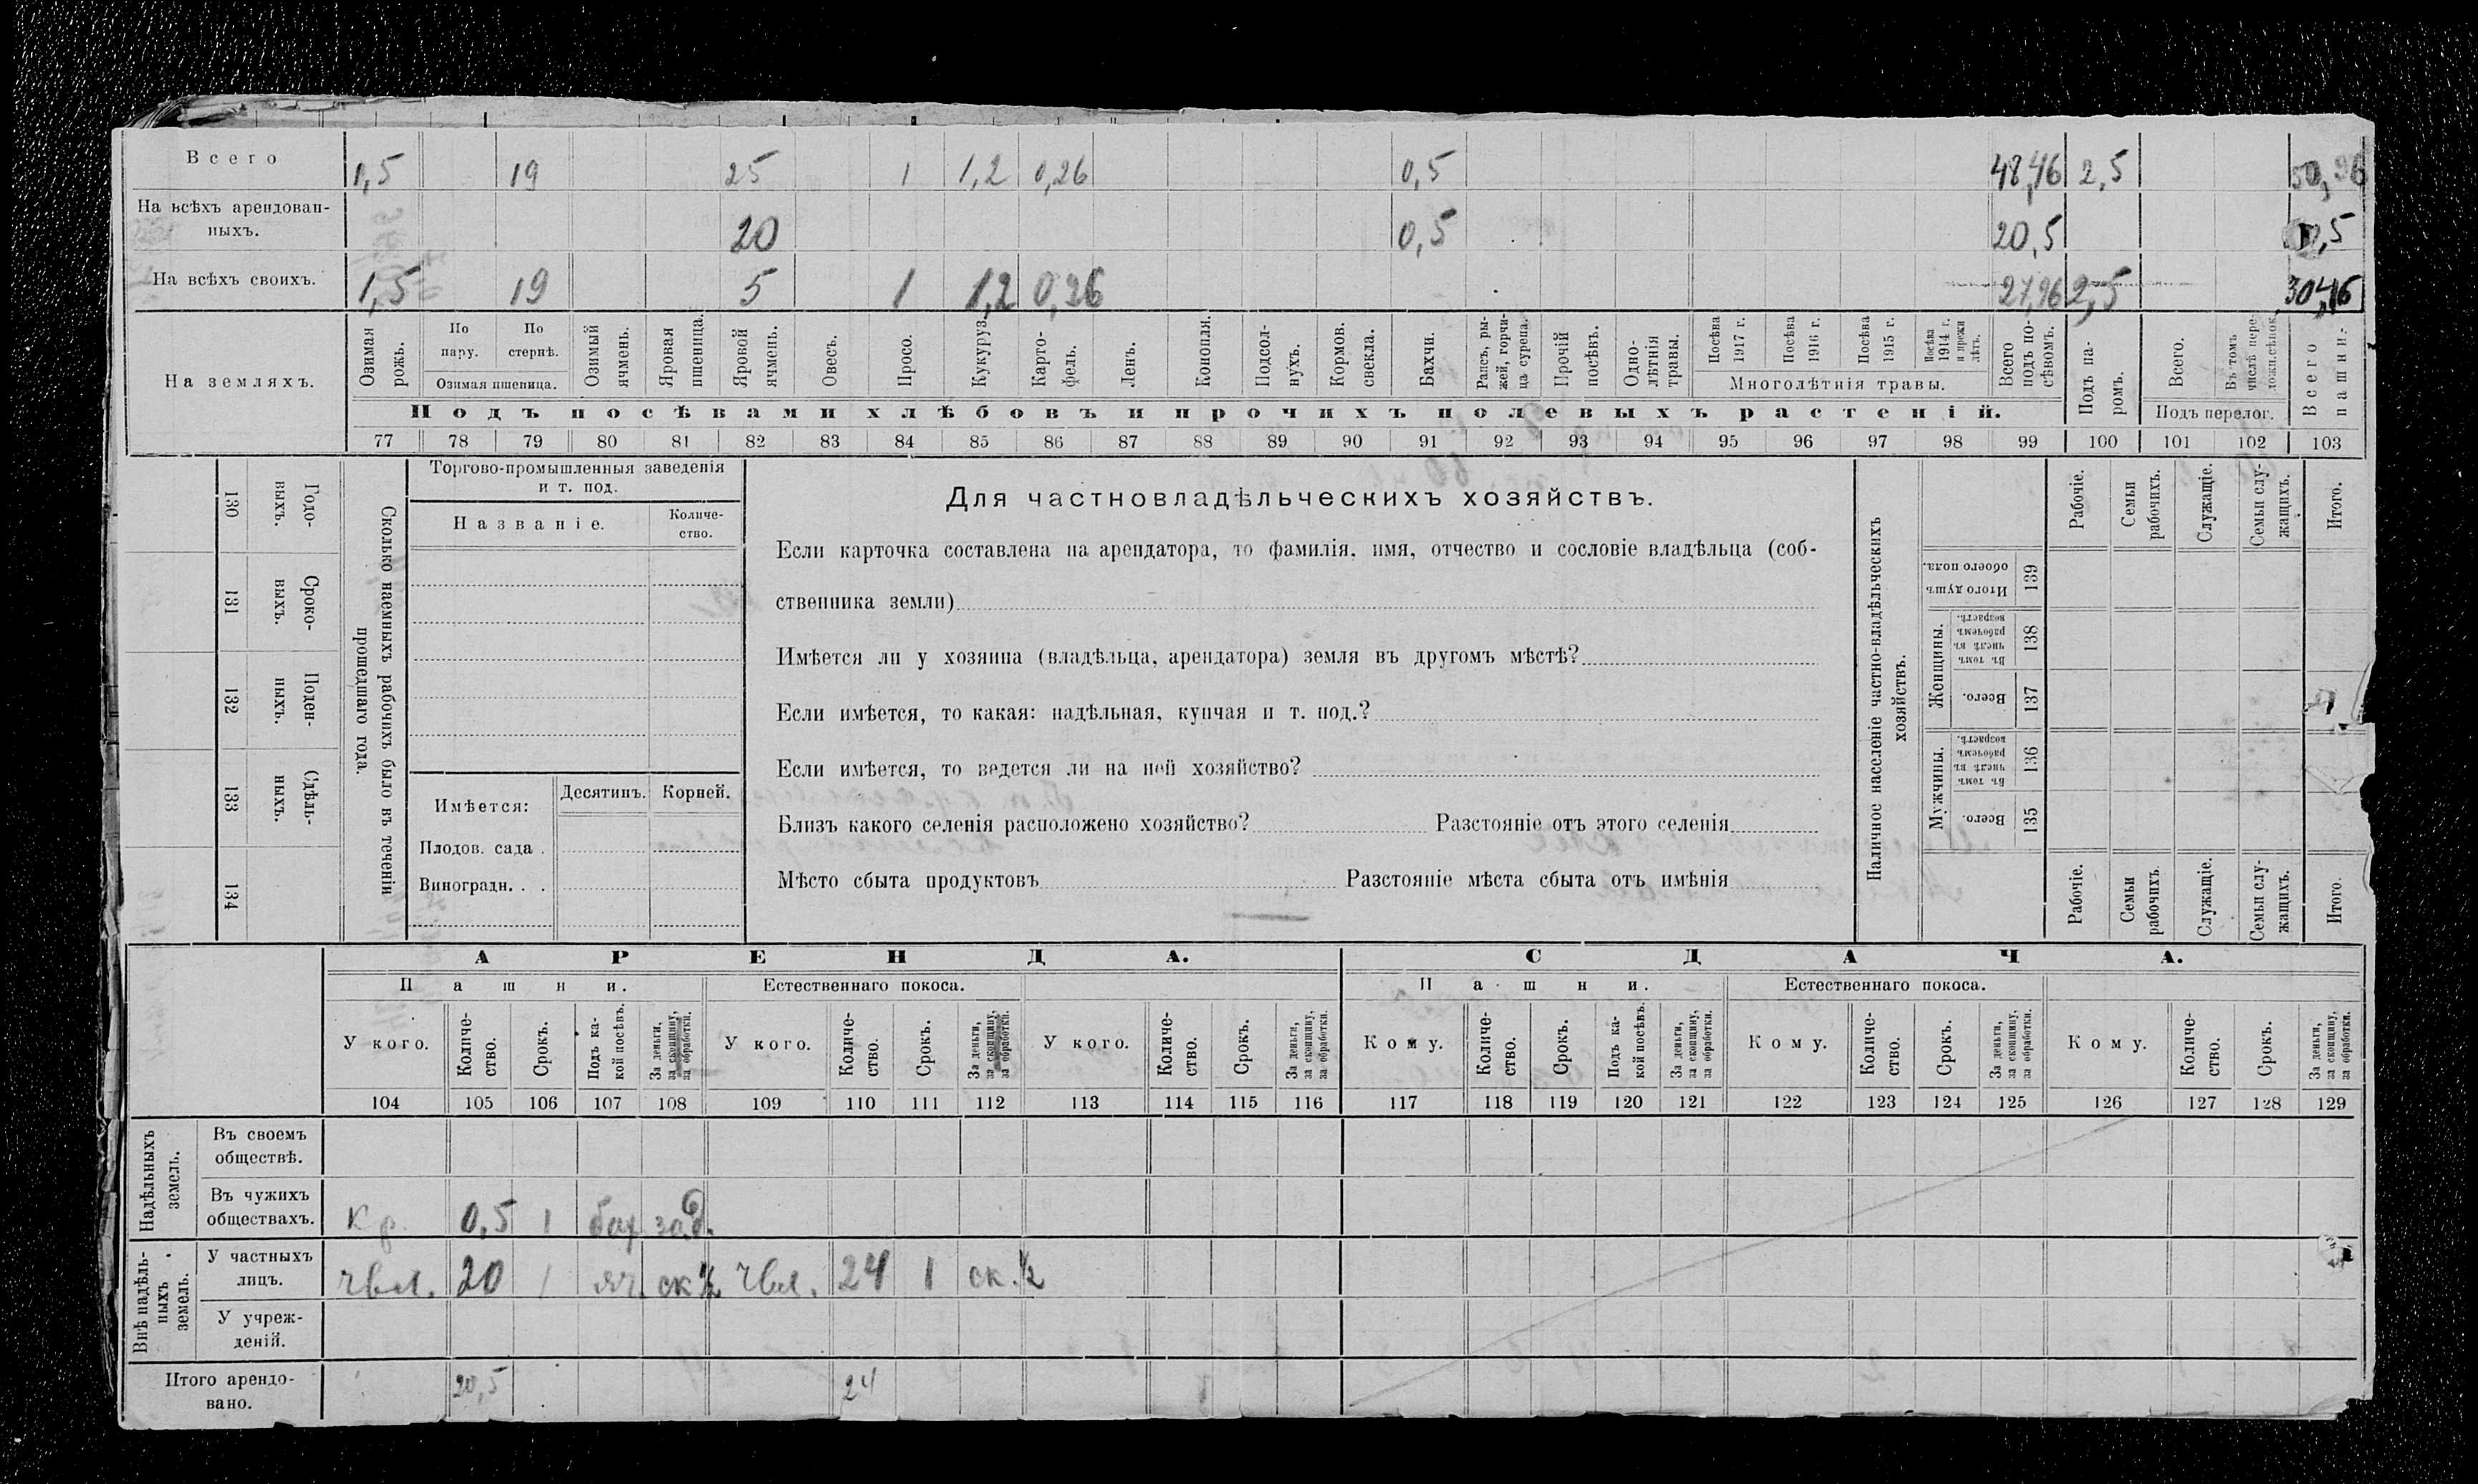 Всего 1,5 19 25 1 1,2 0,26 0,5 48,46 2,5 50,96
На всѣхъ арендован-
ныхъ. 20 0,5 20,5
На всѣхъ своихъ. 1,5 19 5 1 1,2 0,26 27,96 2,5 30,46
На земляхъ.
Озимая рожь.
По пару.
По стернѣ.
Озимая пшеница.
Озимый ячмень.
Яровая пшеница.
Яровой ячмень.
Овесъ.
Просо.
Кукуруз.
Карто-
фель.
Ленъ.
Конопля.
Подсол-
нухъ.
Кормов. свекла.
Бахчи.
Рапсъ, ры-
жей, горчи-
ца сурепа.
Прочій посѣвъ.
Одно-
лѣтнія травы.
Посѣва 1917 г.
Посѣва 1916 г.
Посѣва 1915 г.
Посѣва 1914 г. и прежн лѣтъ.
Многолѣтнія травы.
Всего подъ по-
сѣвомъ.
Подъ па-
ромъ.
Всего.
Въ томъ числѣ пере-
ложн. сѣнок.
Подъ перелог.
Всего пашни.
Подъ посѣвами хлѣбовъ и прочихъ полевыхъ растеній.
77 78 79 80 81 82 83 84 85 86 87 88 89 90 91 92 93 94 95 96 97 98 99 100 101 102 103
Сколько наемныхъ рабочихъ было въ теченіи
прошедшаго года.
Годо-
выхъ.
130
Сроко-
выхъ.
131
Поден-
ныхъ.
132
Сдѣль-
ныхъ.
133
134
Торгово-промышленныя заведенія
и т. под.
Названіе.
Количе-
ство.
Имѣется:
Десятинъ.
Корней.
Плодов. сада .
Виноградн. . .
Для частновладѣльческихъ хозяйствъ.
Если карточка составлена на арендатора, то фамилія, имя, отчество и сословіе владѣльца (соб-
ственника земли)
Имѣется ли у хозяина (владѣльца, арендатора) земля въ другомъ мѣстѣ?
Если имѣется, то какая: надѣльная, купчая и т. под.?
Если имѣется, то ведется ли на ней хозяйство?
Близъ какого селенія расположено хозяйство? Разстояніе отъ этого селенія
Мѣсто сбыта продуктовъ Разстояніе мѣста сбыта отъ имѣнія
Наличное населеніе частно-владѣльческихъ
хозяйствъ.
Рабочіе.
Семьи рабочихъ.
Служащіе.
Семьи слу-
жащихъ.
Итого.
Итого душъ обоего пола.
139
Женщины.
Въ томъ числѣ въ рабочемъ возрастѣ.
138
Всего.
137
Мужчины.
Въ томъ числѣ въ рабочемъ возрастѣ.
136
Всего.
135
Рабочіе.
Семьи рабочихъ.
Служащіе.
Семьи слу-
жащихъ.
Итого.
АРЕНДА.
СДАЧА.
Пашни.
Естественнаго покоса.
Пашни.
Естественнаго покоса.
У кого.
Количе-
ство.
Срокъ.
Подъ ка-
кой посѣвъ.
За деньги,
за скопщину,
за обработки.
У кого.
Количе-
ство.
Срокъ.
За деньги,
за скопщину,
за обработки.
У кого.
Количе-
ство.
Срокъ.
За деньги,
за скопщину,
за обработки.
Кому.
Количе-
ство.
Срокъ.
Подъ ка-
кой посѣвъ.
За деньги,
за скопщину,
за обработки.
Кому.
Количе-
ство.
Срокъ.
За деньги,
за скопщину,
за обработки.
Кому.
Количе-
ство.
Срокъ.
За деньги,
за скопщину,
за обработки.
104 105 106 107 108 109 110 111 112 113 114 115 116 117 118 119 120 121 122 123 124 125 126 127 128 129
Надѣльныхъ
земель.
Въ своемъ
обществѣ.
Въ чужихъ
обществахъ. кр. 0,5 1 бах.
Внѣ надѣль-
ныхъ
земель.
У частныхъ
лицъ. чвл. 20 1 яч. ск ½ чвл. 24 1 ск. ½
У учреж-
деній.
Итого арендо-
вано. 20,5 24